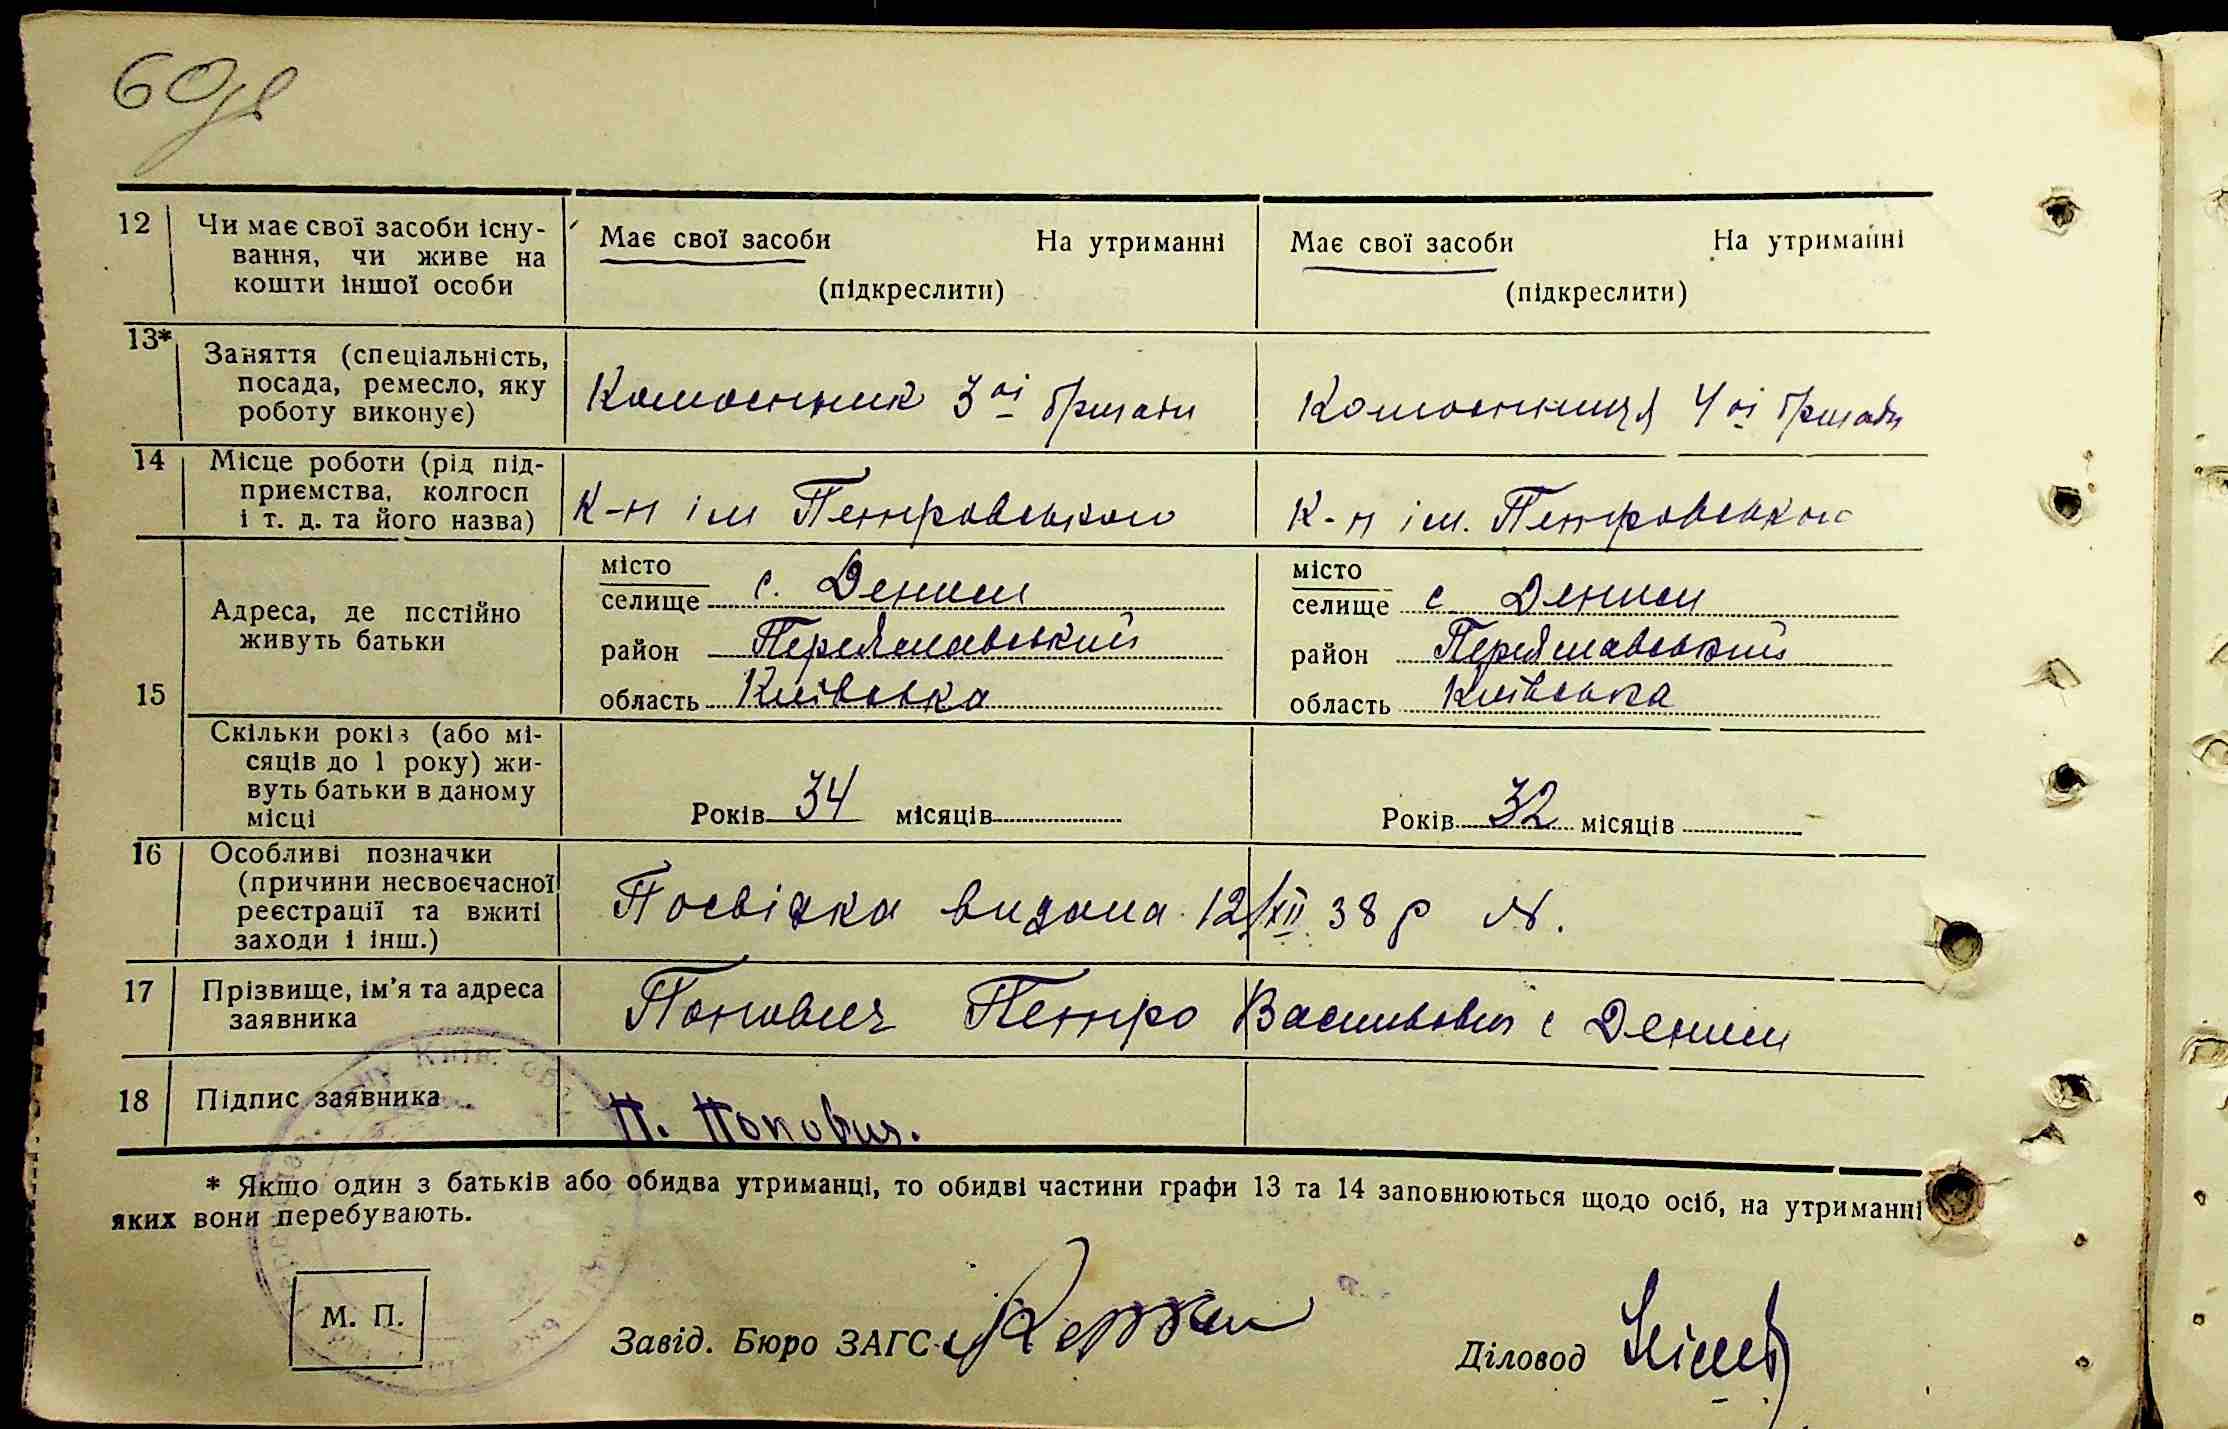 60
12 Чи має свої засоби існу-
вання, чи живе на
кошти іншої особи
Має свої засоби На утриманні
(підкреслити)
Має свої засоби На утриманні
(підкреслити)
13* Заняття (спеціальність,
посада, ремесло, яку
роботу виконує)
Колгоспник 3ої бригади
Колгоспниця 4ої бригади
14 Місце роботи (рід під-
приємства, колгосп
і т. д. та його назва)
К-п ім Петровського
К-п ім. Петровського
15 Адреса, де постійно
живуть батьки
місто
селище с. Дениси
район Переяславський
область Київська
місто
селище с Дениси
район Переяславський
область Київська
Скільки років (або мі-
сяців до 1 року) жи-
вуть батьки в даному
місці
Років 34 місяців
Років 32 місяців
16 Особливі позначки
(причини несвоєчасної
реєстрації та вжиті
заходи і інш.)
Посвідка видана 12/XII 38 р №.
17 Прізвище, ім'я та адреса
заявника
Попович Петро Васильович с Дениси
18 Підпис заявника
П. Попович.
* Якщо один з батьків або обидва утриманці, то обидві частини графи 13 та 14 заповнюються щодо осіб, на утриманні
яких вони перебувають.
М. П.
Завід. Бюро ЗАГС
Діловод